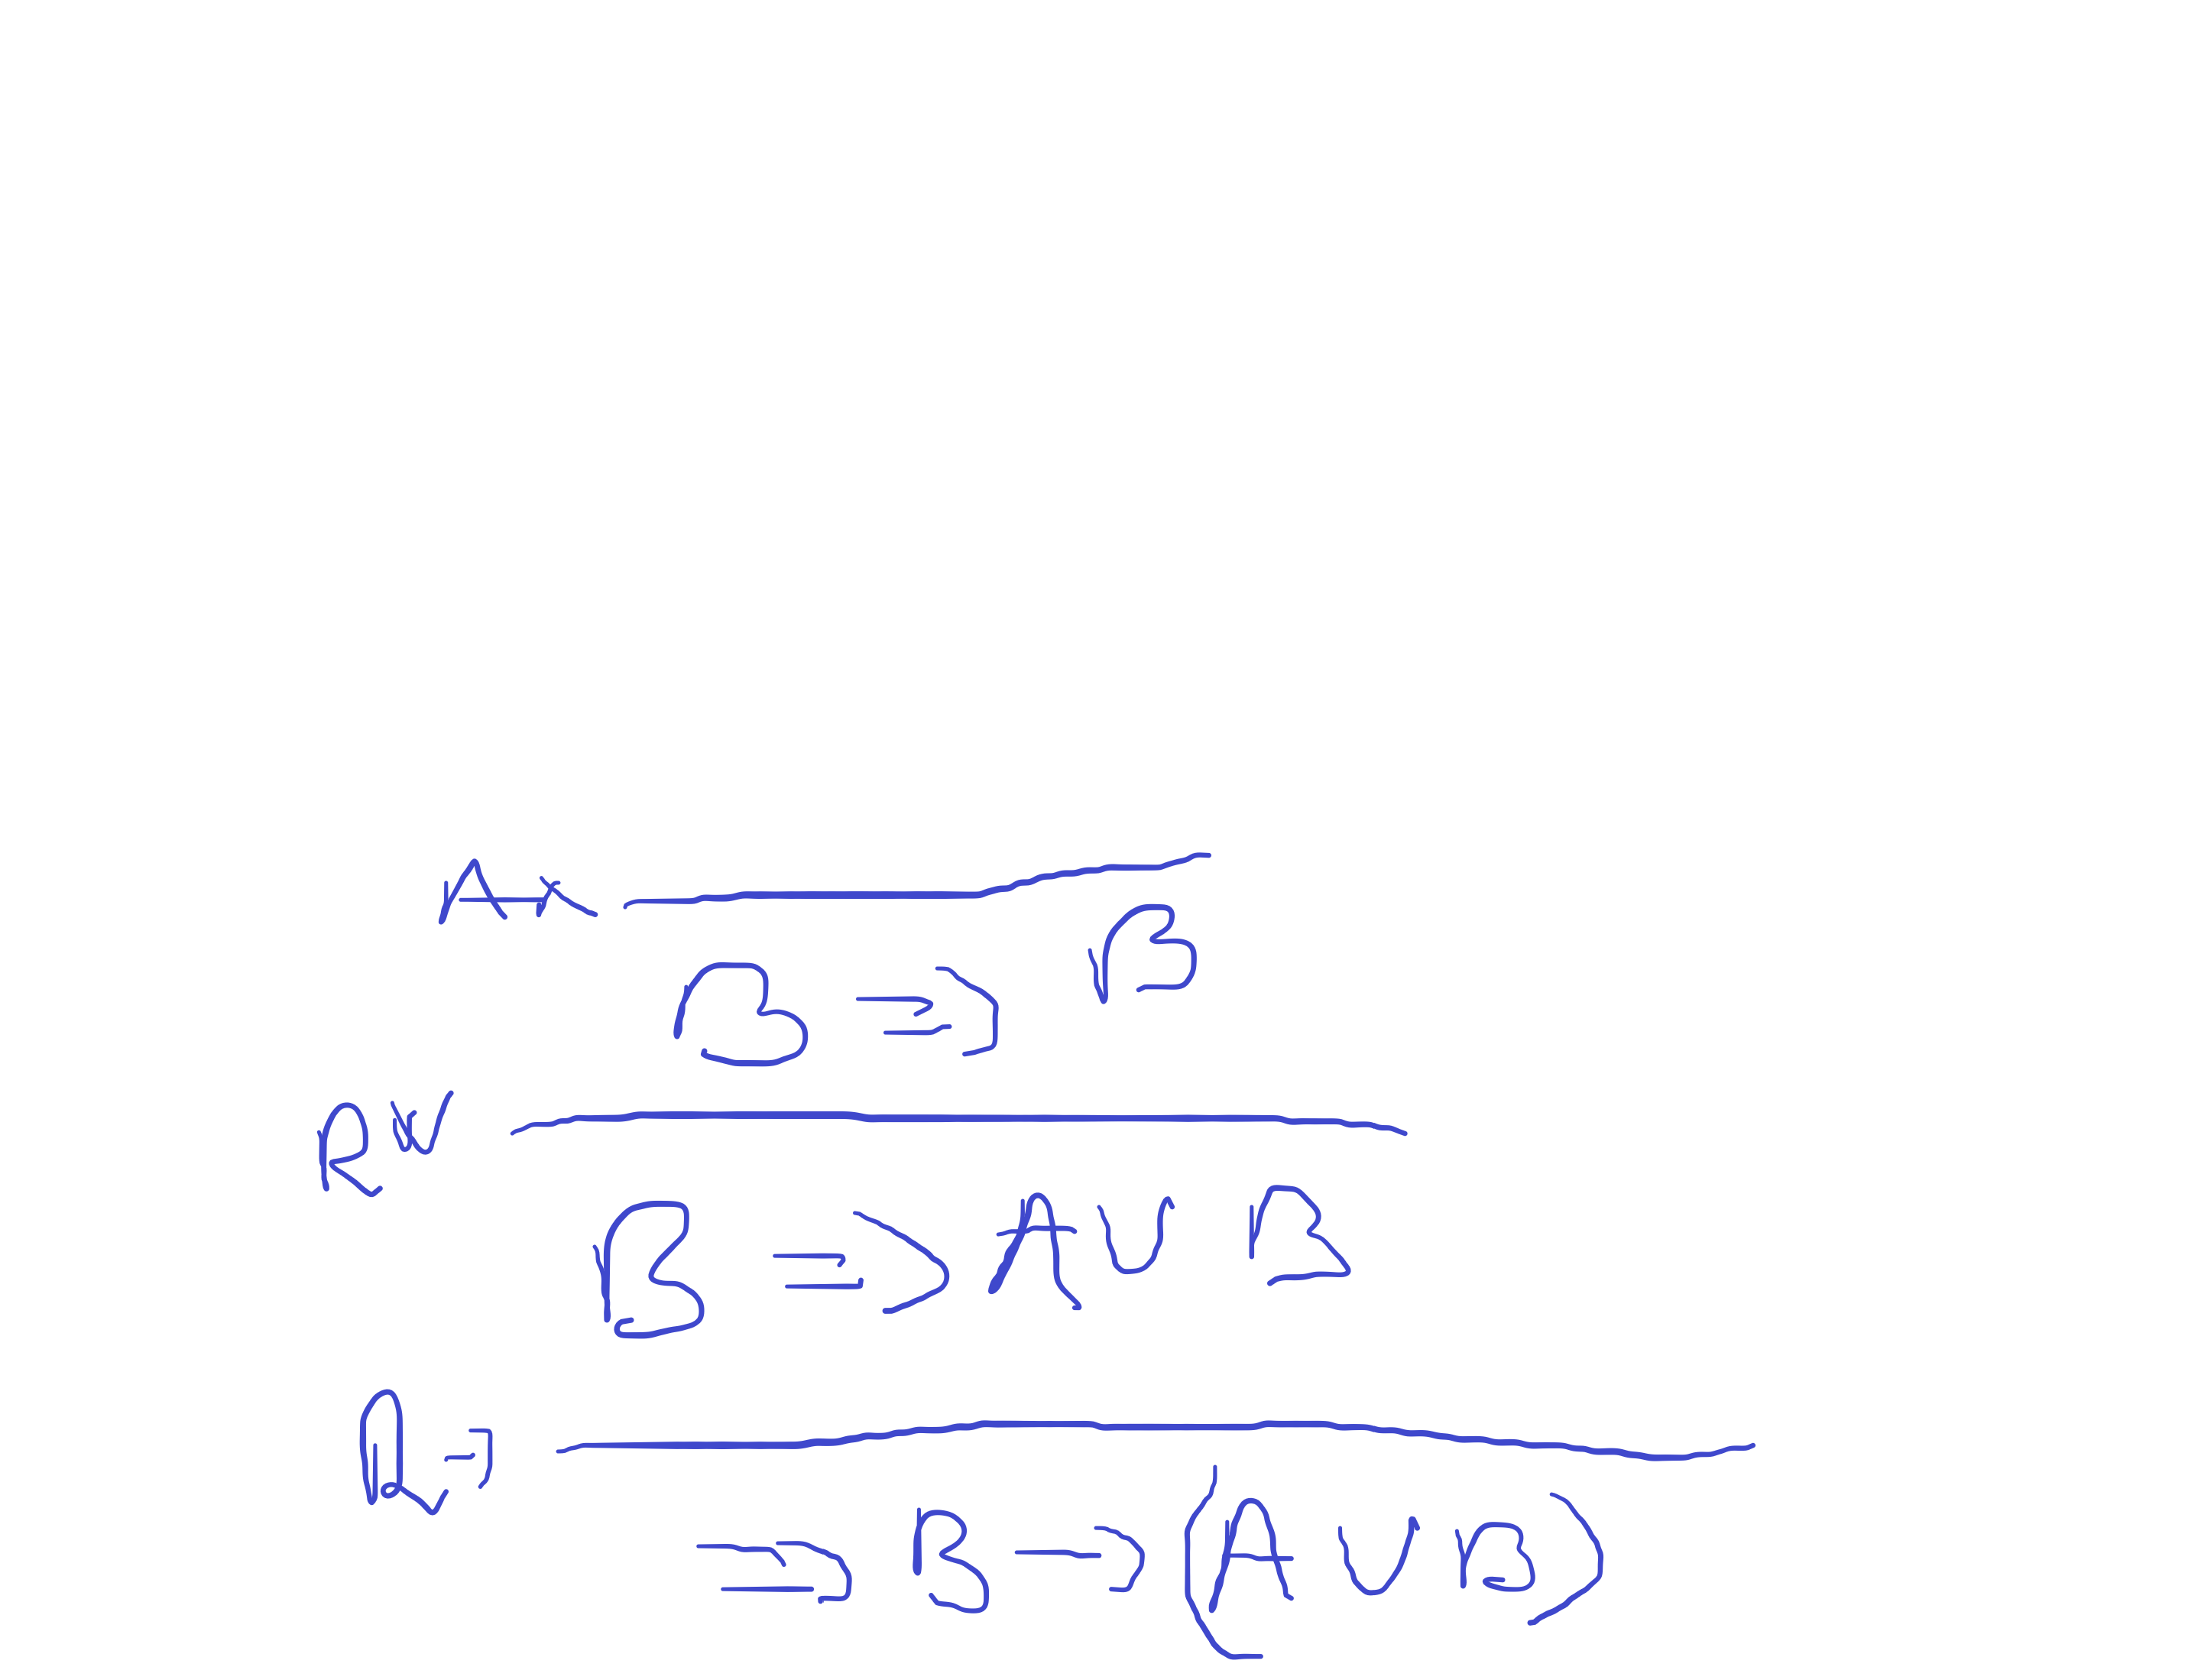 Ax
B ⇒ B
R∨
B ⇒ A ∨ B
R→
⇒ B → (A ∨ B)